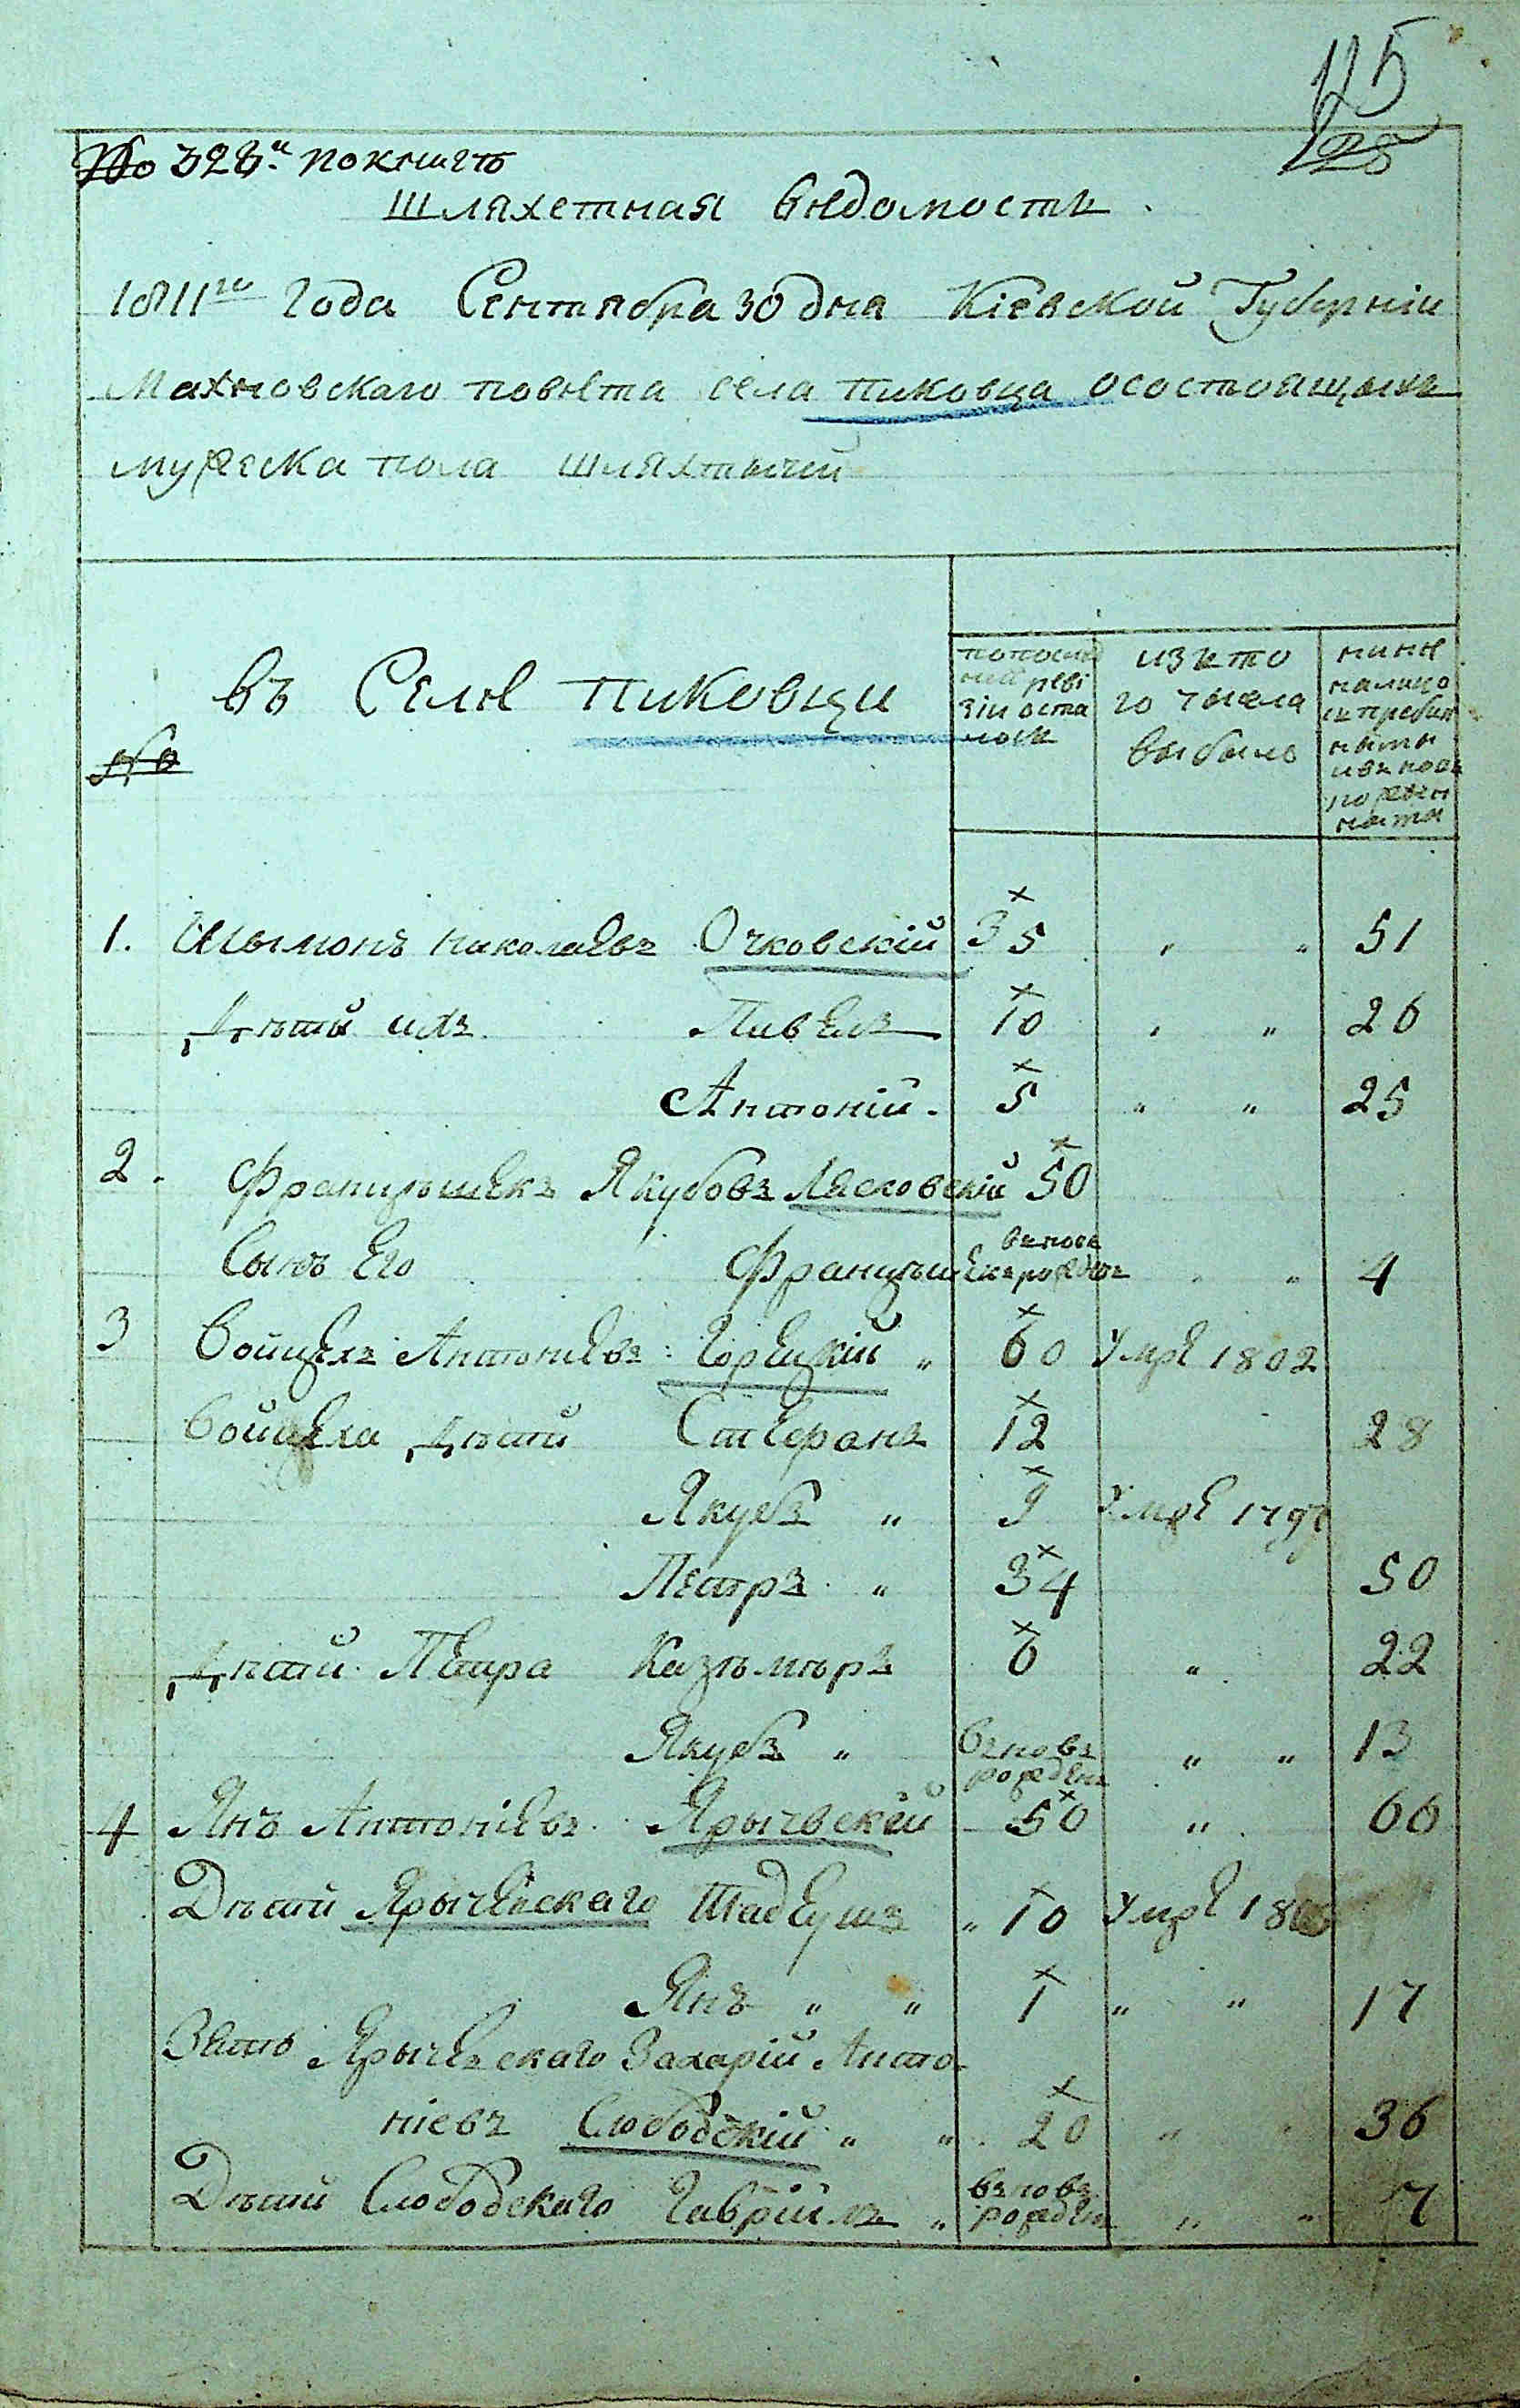 125
128
№ 328й по книгѣ
Шляхетная вѣдомость
1811го Года Сентября 30 дня Кіевской Губерніи
Махновскаго повѣта села пиковца осостоящыхъ
мужеска пола шляхтычи
№
въ Селѣ пиковци
попослѣд
ней реві
зіи оста
лось
изъ то
го чысла
выбыло
нинѣ
налицо
съ прибыл
ныты
ивъ новь
порожден
ныты
1. Шымонъ николаевъ Очковскій 35 " " 51
Дѣтй ихъ Павелъ 10 " " 26
Антоній 5 " " 25
2. Францышекъ Якубовъ Лясковскій 50
Сынъ Его Францышекъ въновь рожденъ " " 4
3 Войцехъ Антоніевъ Горецкій " 60 Умре 1802
Войцеха дѣтй Стефанъ 12 28
Якубъ " 9 Умре 1797
Петръ " 34 50
Дѣтй Петра Казѣмѣръ 6 " 22
Якубъ " въновъ рожденъ " " 13
4 Янъ Антоніевъ Ярычевскій 50 " 66
Дѣтй Ярычевскаго Тадеушъ " 10 Умре
Янъ " " 1 " " 17
Зять Ярычевскаго Захарій Анто
ніевъ Слободскій " " 20 " " 36
Дѣтй Слободскаго Гавріилъ " въновъ рожденъ " " 7